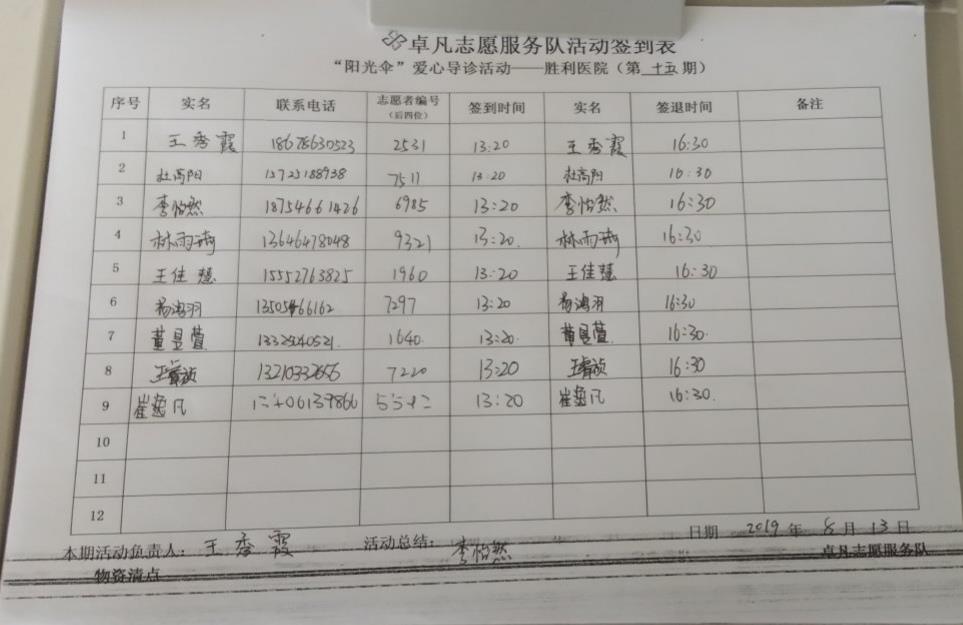 卓凡志愿服务队活动签到表
“阳光伞”爱心导诊活动——胜利医院(第 十五 期)
序号 实名 联系电话 志愿者编号(后四位) 签到时间 实名 签退时间 备注
1 王秀霞 18678630523 2531 13:20 王秀霞 16:30
2 杜高阳 15725188938 7511 13:20 杜高阳 16:30
3 李怡然 18754661426 6985 13:20 李怡然 16:30
4 林雨琦 13646478048 9321 13:20 林雨琦 16:30
5 王佳慧 15552763825 1960 13:20 王佳慧 16:30
6 杨鸿羽 13505466162 7297 13:20 杨鸿羽 16:30
7 董昱萱 13325040521 1640 13:20 董昱萱 16:30
8 13210332656 7220 13:20 16:30
9 崔逸凡 13:20 崔逸凡 16:30
10
11
12
本期活动负责人: 王秀霞 活动总结: 李怡然 日期 2019 年 8 月 13 日
物资清点 卓凡志愿服务队